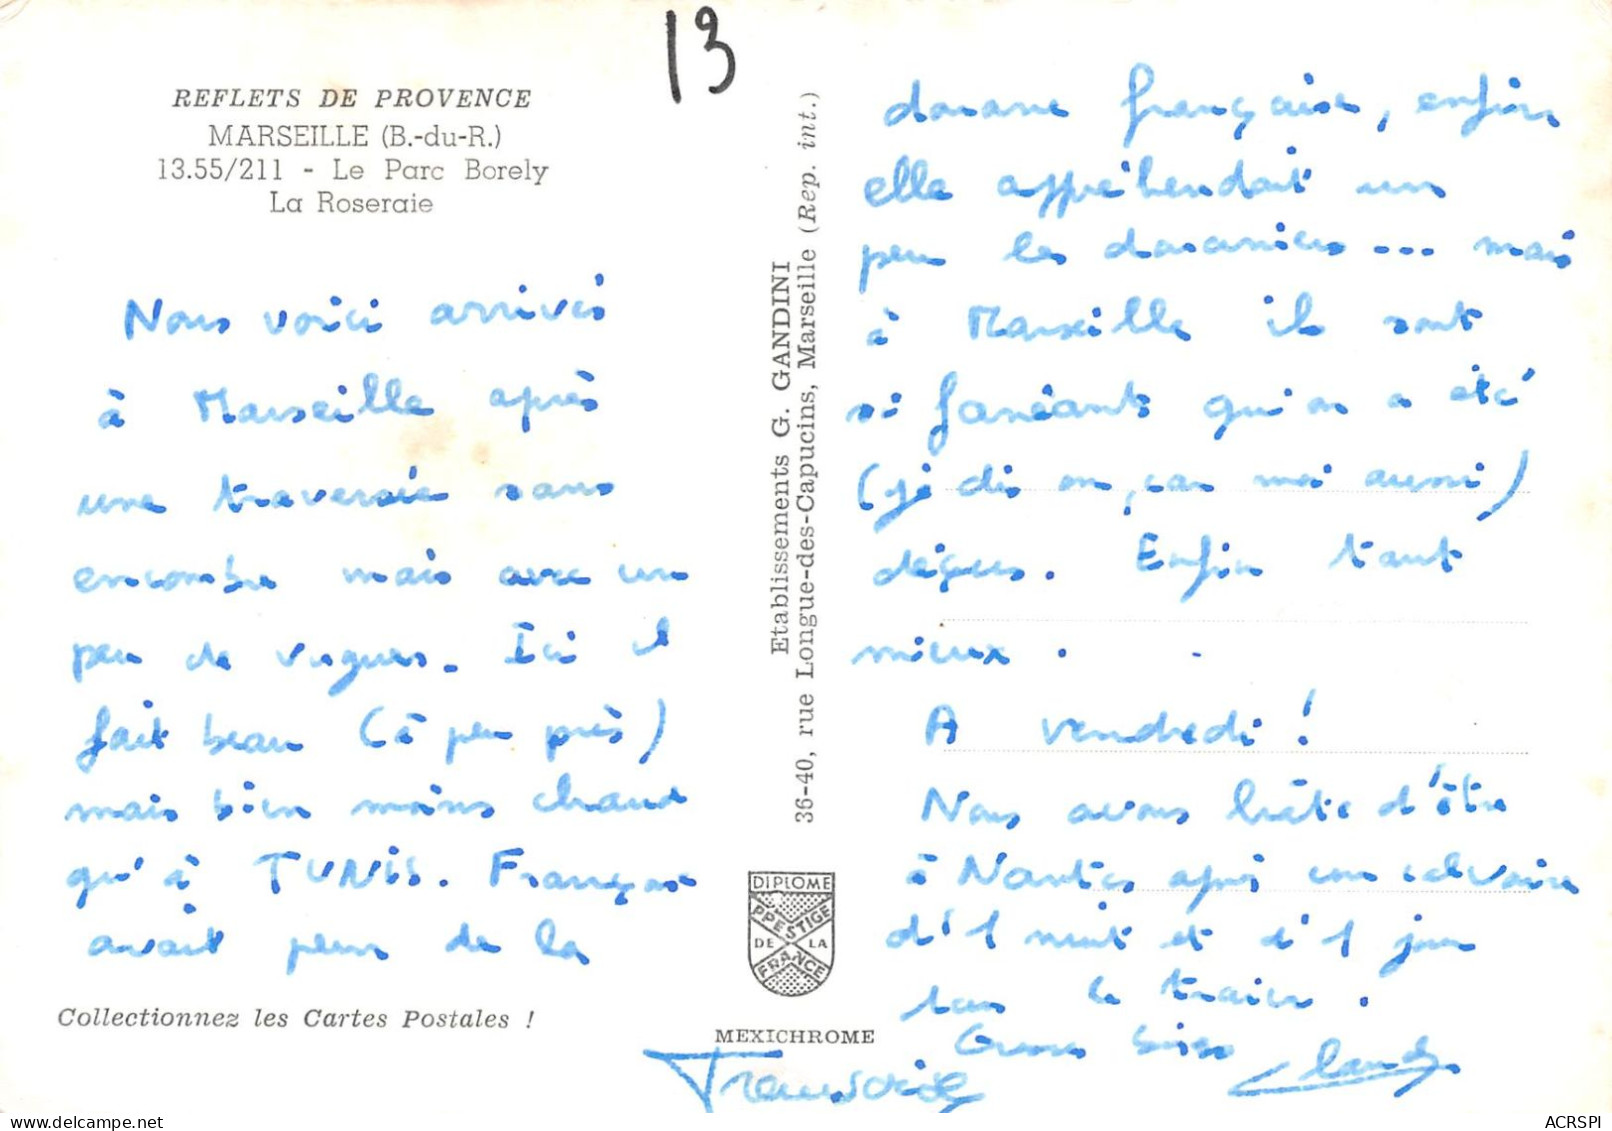 13
REFLETS DE PROVENCE
MARSEILLE (B.-du-R.)
13.55/211 - Le Parc Borely
La Roseraie
Nous voici arrivés
à Marseille après
une traversée sans
encombre mais avec un
peu de vagues. Ici il
fait beau (à peu près)
mais bien moins chaud
qu'à TUNIS. Françoise
avait peur de la
Collectionnez les Cartes Postales !
Etablissements G. GANDINI
36-40, rue Longue-des-Capucins, Marseille (Rep. int.)
DIPLOME
PRESTIGE
DE LA
FRANCE
MEXICHROME
douane française, enfin
elle appréhendait un
peu les douaniers... mais
à Marseille ils sont
si fainéants qu'on a été
(je dis on, car moi aussi)
déçus. Enfin tant
mieux.
A vendredi !
Nous avons hâte d'être
à Nantes après un calvaire
d'1 nuit et d'1 jour
dans le train.
Grosses bises Claude
Françoise
ACRSPI